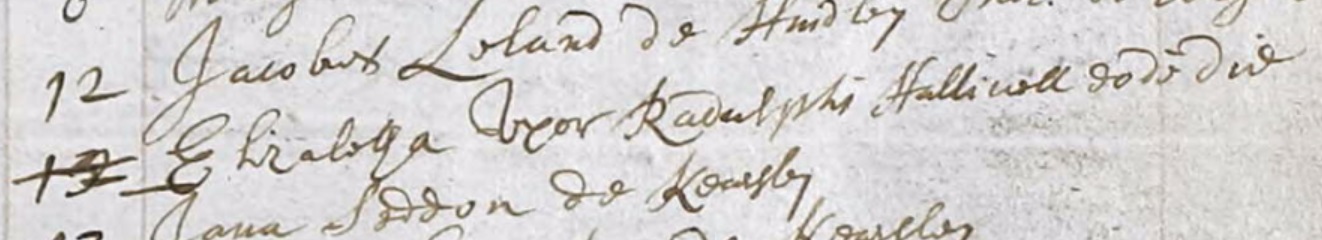 12 Jacobus Leland de Hindley
Elizabetha Vxor Radulphi Halliwell eodē die
Jana Seddon de Kearsley
Kearsley